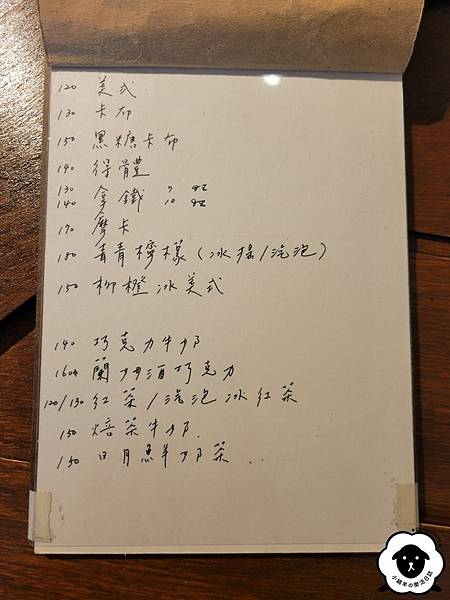 120 美式
130 卡布
150 黑糖卡布
140 得體
130 140 拿鐵 7oz 10oz
170 摩卡
180 青青檸檬(冰搖/汽泡)
150 柳橙冰美式
140 巧克力牛奶
160 蘭姆酒巧克力
120/130 紅茶/汽泡冰紅茶
150 焙茶牛奶
150 日月鮮奶茶
小綿羊の樂活日誌